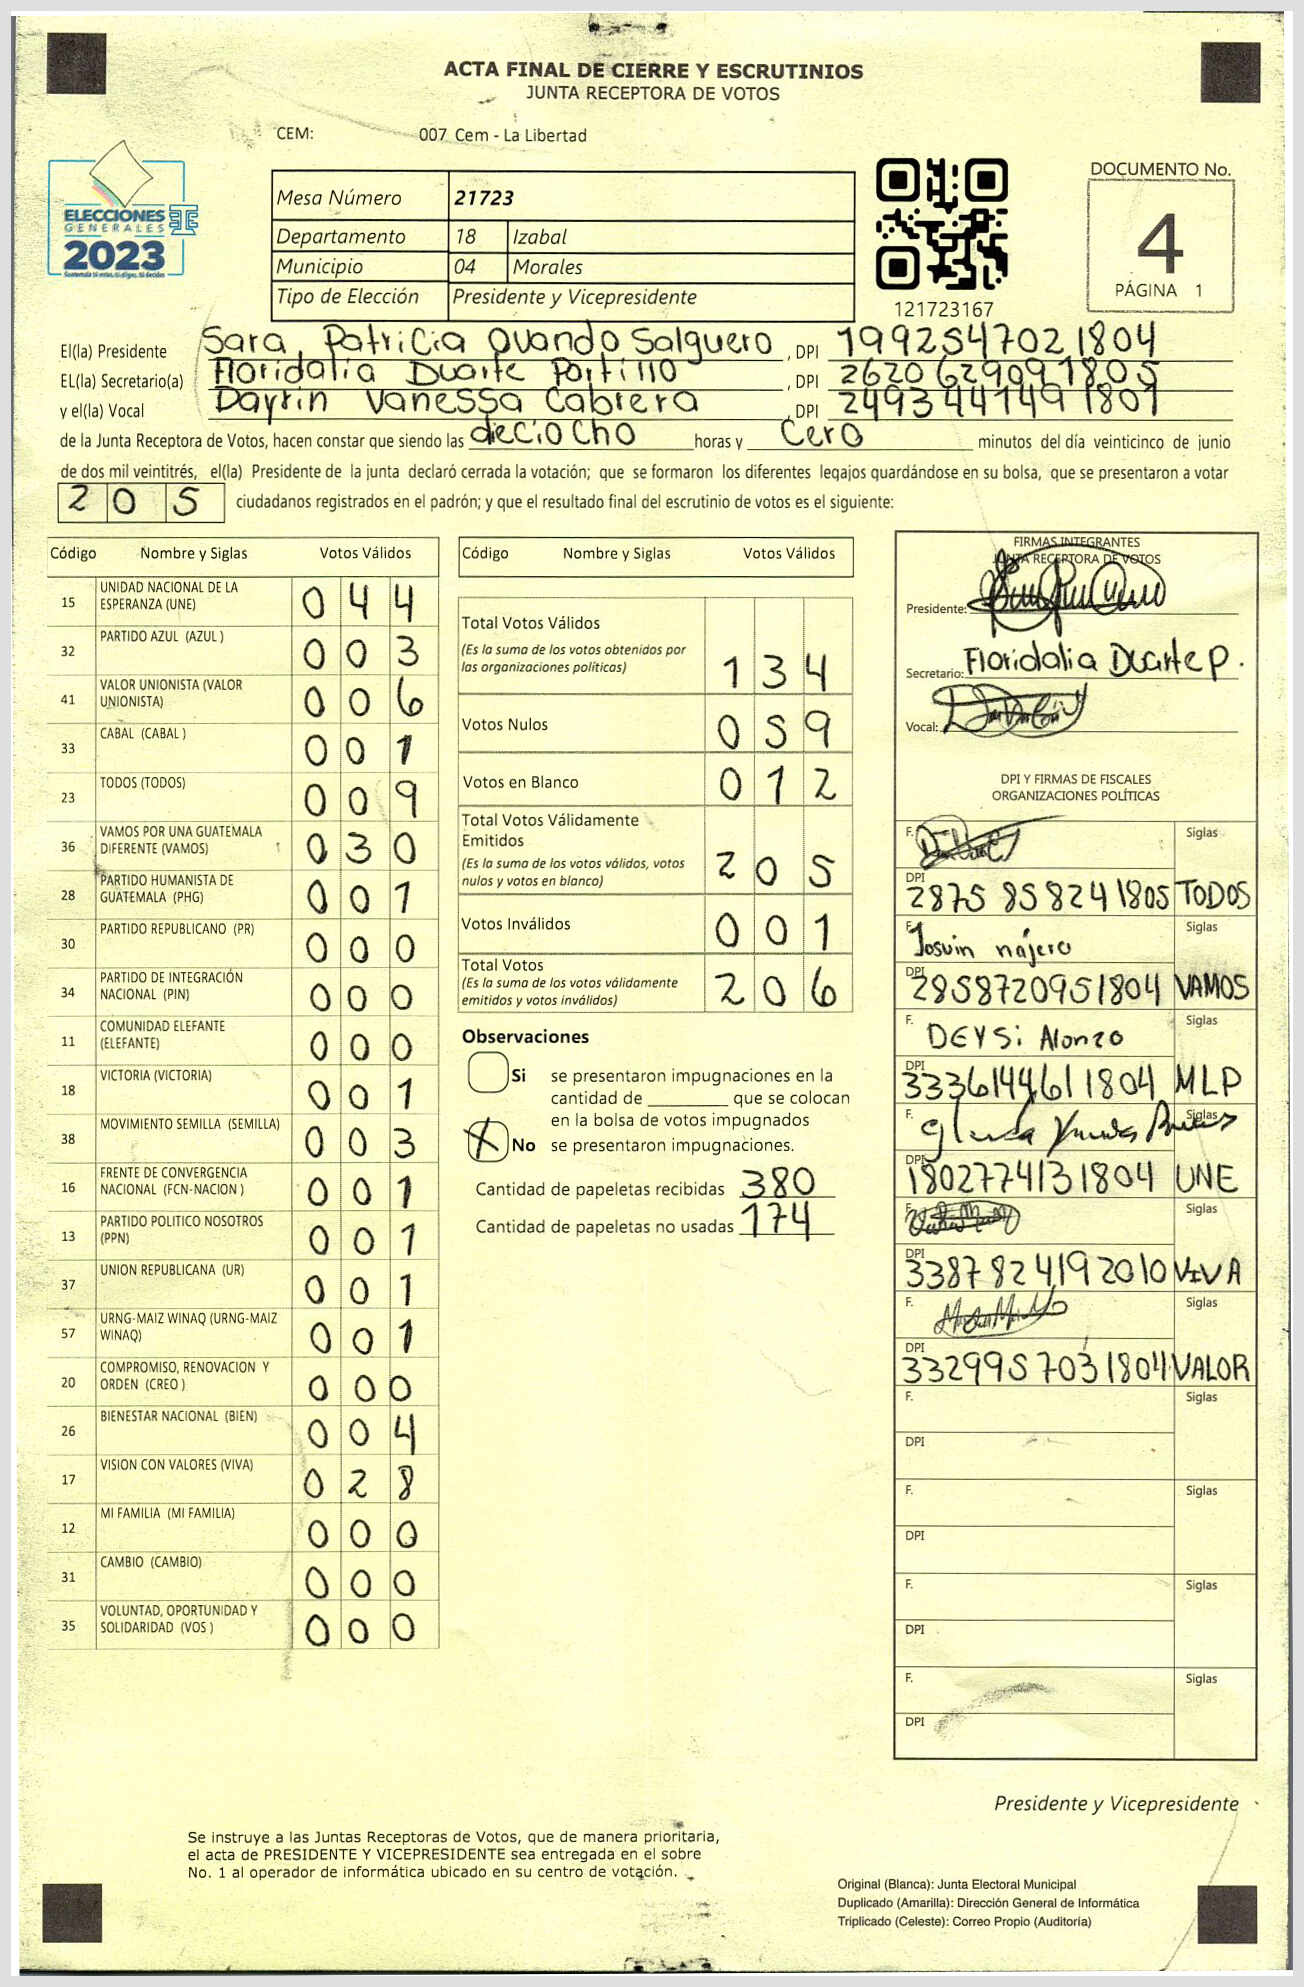 ACTA FINAL DE CIERRE Y ESCRUTINIOS
JUNTA RECEPTORA DE VOTOS
CEM: 007 Cem - La Libertad
ELECCIONES
GENERALES
2023
Mesa Número 21723
Departamento 18 Izabal
Municipio 04 Morales
Tipo de Elección Presidente y Vicepresidente
121723167
DOCUMENTO No.
4
PÁGINA 1
El(la) Presidente Sara Patricia Ovando Salguero , DPI 1992547021804
EL(la) Secretario(a) Floridalia Duarte Portillo , DPI 2620629091805
y el(la) Vocal Dayrin Vanessa Cabrera , DPI 2493441491801
de la Junta Receptora de Votos, hacen constar que siendo las deciocho horas y Cero minutos del día veinticinco de junio
de dos mil veintitrés, el(la) Presidente de la junta declaró cerrada la votación; que se formaron los diferentes legajos guardándose en su bolsa, que se presentaron a votar
205 ciudadanos registrados en el padrón; y que el resultado final del escrutinio de votos es el siguiente:
Código Nombre y Siglas Votos Válidos
15 UNIDAD NACIONAL DE LA ESPERANZA (UNE) 044
32 PARTIDO AZUL (AZUL ) 003
41 VALOR UNIONISTA (VALOR UNIONISTA) 006
33 CABAL (CABAL ) 001
23 TODOS (TODOS) 009
36 VAMOS POR UNA GUATEMALA DIFERENTE (VAMOS) 030
28 PARTIDO HUMANISTA DE GUATEMALA (PHG) 001
30 PARTIDO REPUBLICANO (PR) 000
34 PARTIDO DE INTEGRACIÓN NACIONAL (PIN) 000
11 COMUNIDAD ELEFANTE (ELEFANTE) 000
18 VICTORIA (VICTORIA) 001
38 MOVIMIENTO SEMILLA (SEMILLA) 003
16 FRENTE DE CONVERGENCIA NACIONAL (FCN-NACION ) 001
13 PARTIDO POLITICO NOSOTROS (PPN) 001
37 UNION REPUBLICANA (UR) 001
57 URNG-MAIZ WINAQ (URNG-MAIZ WINAQ) 001
20 COMPROMISO, RENOVACION Y ORDEN (CREO ) 000
26 BIENESTAR NACIONAL (BIEN) 004
17 VISION CON VALORES (VIVA) 028
12 MI FAMILIA (MI FAMILIA) 000
31 CAMBIO (CAMBIO) 000
35 VOLUNTAD, OPORTUNIDAD Y SOLIDARIDAD (VOS ) 000
Código Nombre y Siglas Votos Válidos
Total Votos Válidos
(Es la suma de los votos obtenidos por
las organizaciones politicas) 134
Votos Nulos 059
Votos en Blanco 012
Total Votos Válidamente
Emitidos
(Es la suma de los votos válidos, votos
nulos y votos en blanco) 205
Votos Inválidos 001
Total Votos
(Es la suma de los votos válidamente
emitidos y votos inválidos) 206
Observaciones
Si se presentaron impugnaciones en la
cantidad de ________ que se colocan
en la bolsa de votos impugnados
X No se presentaron impugnaciones.
Cantidad de papeletas recibidas 380
Cantidad de papeletas no usadas 174
FIRMAS INTEGRANTES
JUNTA RECEPTORA DE VOTOS
Presidente:
Secretario: Floridalia Duarte p.
Vocal:
DPI Y FIRMAS DE FISCALES
ORGANIZACIONES POLÍTICAS
F. Siglas
DPI 2875858241805 TODOS
F. Josuin nájero Siglas
DPI 2858720951804 VAMOS
F. DEYSi Alonzo Siglas
DPI 3336144611804 MLP
F. Siglas
DPI 1802774131804 UNE
F. Siglas
DPI 3387824192010 VIVA
F. Siglas
DPI 3329957031804 VALOR
F. Siglas
DPI
F. Siglas
DPI
F. Siglas
DPI
F. Siglas
DPI
Presidente y Vicepresidente
Se instruye a las Juntas Receptoras de Votos, que de manera prioritaria,
el acta de PRESIDENTE Y VICEPRESIDENTE sea entregada en el sobre
No. 1 al operador de informática ubicado en su centro de votación.
Original (Blanca): Junta Electoral Municipal
Duplicado (Amarilla): Dirección General de Informática
Triplicado (Celeste): Correo Propio (Auditoría)